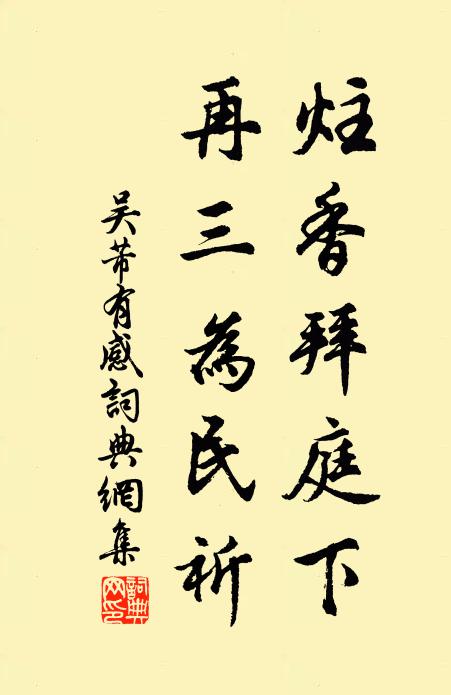 炷香拜庭下
再三為民祈
吴芾有感詞典網集
詞典网印